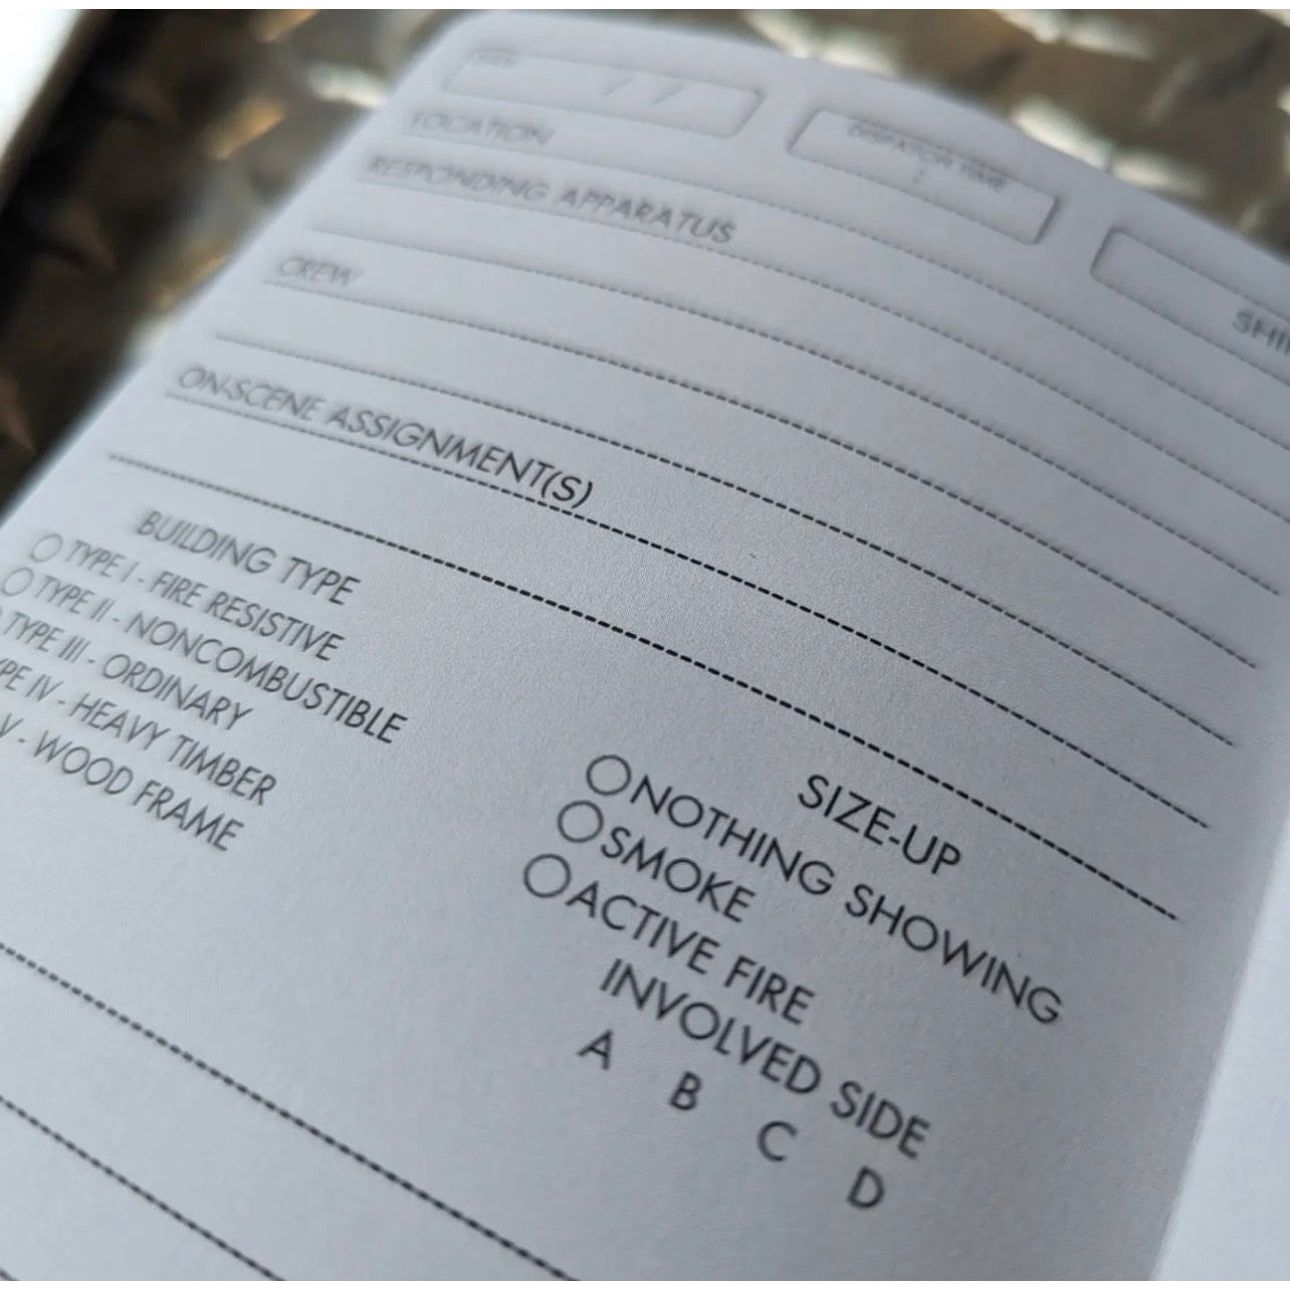 DATE / /
DISPATCH TIME :
LOCATION
RESPONDING APPARATUS
CREW
ON-SCENE ASSIGNMENT(S)
BUILDING TYPE
TYPE I - FIRE RESISTIVE
TYPE II - NONCOMBUSTIBLE
TYPE III - ORDINARY
PE IV - HEAVY TIMBER
V - WOOD FRAME
SIZE-UP
NOTHING SHOWING
SMOKE
ACTIVE FIRE
INVOLVED SIDE
A B C D